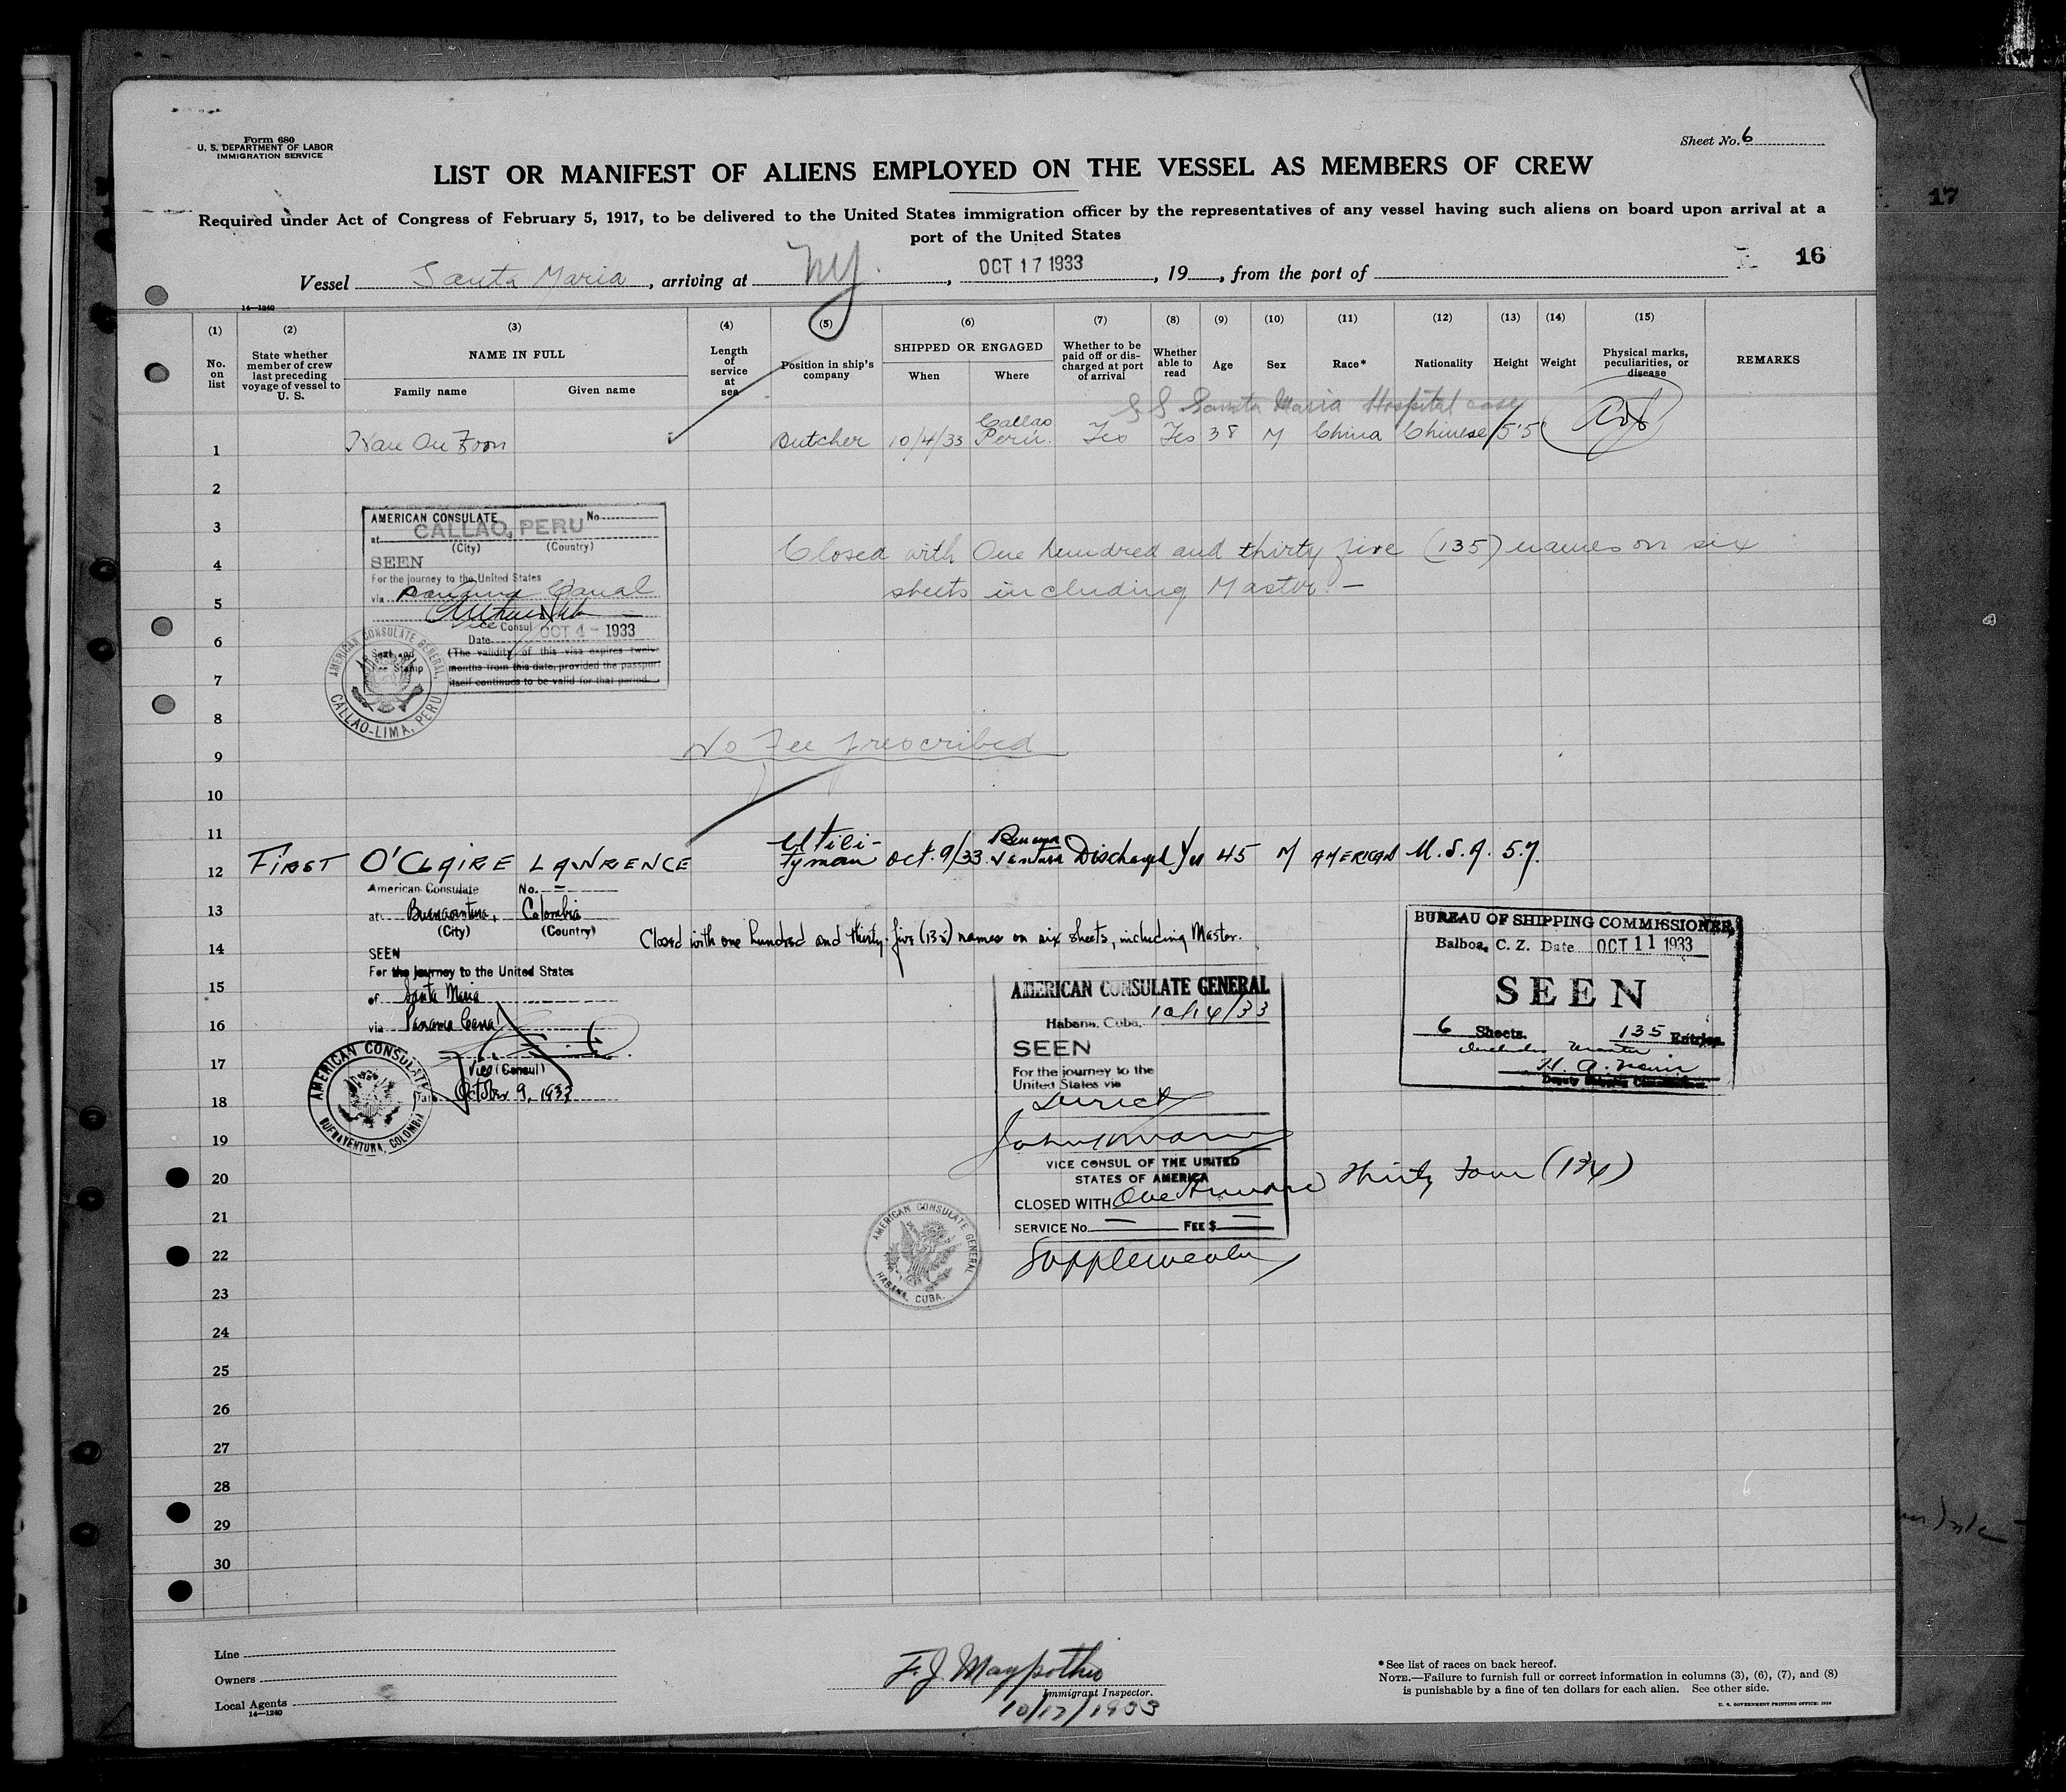 Form 680
U. S. DEPARTMENT OF LABOR
IMMIGRATION SERVICE
Sheet No. 6
LIST OR MANIFEST OF ALIENS EMPLOYED ON THE VESSEL AS MEMBERS OF CREW
Required under Act of Congress of February 5, 1917, to be delivered to the United States immigration officer by the representatives of any vessel having such aliens on board upon arrival at a
port of the United States
17
16
Vessel Santa Maria, arriving at NY., OCT 17 1933, 19, from the port of
14—1240
(1) (2) (3) (4) (5) (6) (7) (8) (9) (10) (11) (12) (13) (14) (15)
No. on list
State whether member of crew last preceding voyage of vessel to U. S.
NAME IN FULL
Family name
Given name
Length of service at sea
Position in ship's company
SHIPPED OR ENGAGED
When
Where
Whether to be paid off or discharged at port of arrival
Whether able to read
Age
Sex
Race*
Nationality
Height
Weight
Physical marks, peculiarities, or disease
REMARKS
S S Santa Maria Hospital case
1 On Foon Butcher 10/4/33 Callao Peru. Yes Yes 38 M China Chinese 5'5
2
3
4
5
6
7
8
9
10
11
AMERICAN CONSULATE No
at CALLAO, PERU
(City) (Country)
SEEN
For the journey to the United States
via Panama Canal
Vice Consul
Date OCT 4 - 1933
(The validity of this visa expires twelve
months from this date, provided the passport
itself continues to be valid for that period.
Seal and Fee Stamp
AMERICAN CONSULATE GENERAL, CALLAO-LIMA, PERU
Closed with One hundred and thirty five (135) names on six
sheets including Master. —
No Fee prescribed
12 FIRST O'CLAIRE LAWRENCE Utili-tyman Oct. 9/33 Buenaventura Discharged Yes 45 M AMERICAN U.S.A. 5.7.
13
14
15
16
17
18
19
20
21
22
23
24
25
26
27
28
29
30
American Consulate No. —
at Buenaventura, Colombia
(City) (Country)
SEEN
For the journey to the United States
of Santa Maria
via Panama Canal
Vice (Consul)
October 9, 1933
AMERICAN CONSULATE BUENAVENTURA, COLOMBIA
Closed with one hundred and thirty-five (135) names on six sheets, including Master.
BUREAU OF SHIPPING COMMISSIONER,
Balboa, C. Z. Date OCT 11 1933
SEEN
6 Sheets. 135 Entries
includes Master
Deputy Shipping Commissioner.
AMERICAN CONSULATE GENERAL
Habana, Cuba, 10/14/33
SEEN
For the journey to the
United States via
Direct
VICE CONSUL OF THE UNITED
STATES OF AMERICA
CLOSED WITH One Hundred Thirty Four (134)
SERVICE No. — FEE $ —
AMERICAN CONSULATE GENERAL HABANA, CUBA.
6
Line
Owners
Local Agents
14—1240
F. J.
Immigrant Inspector.
10/17/1933
*See list of races on back hereof.
NOTE.—Failure to furnish full or correct information in columns (3), (6), (7), and (8)
is punishable by a fine of ten dollars for each alien. See other side.
U. S. GOVERNMENT PRINTING OFFICE: 1929